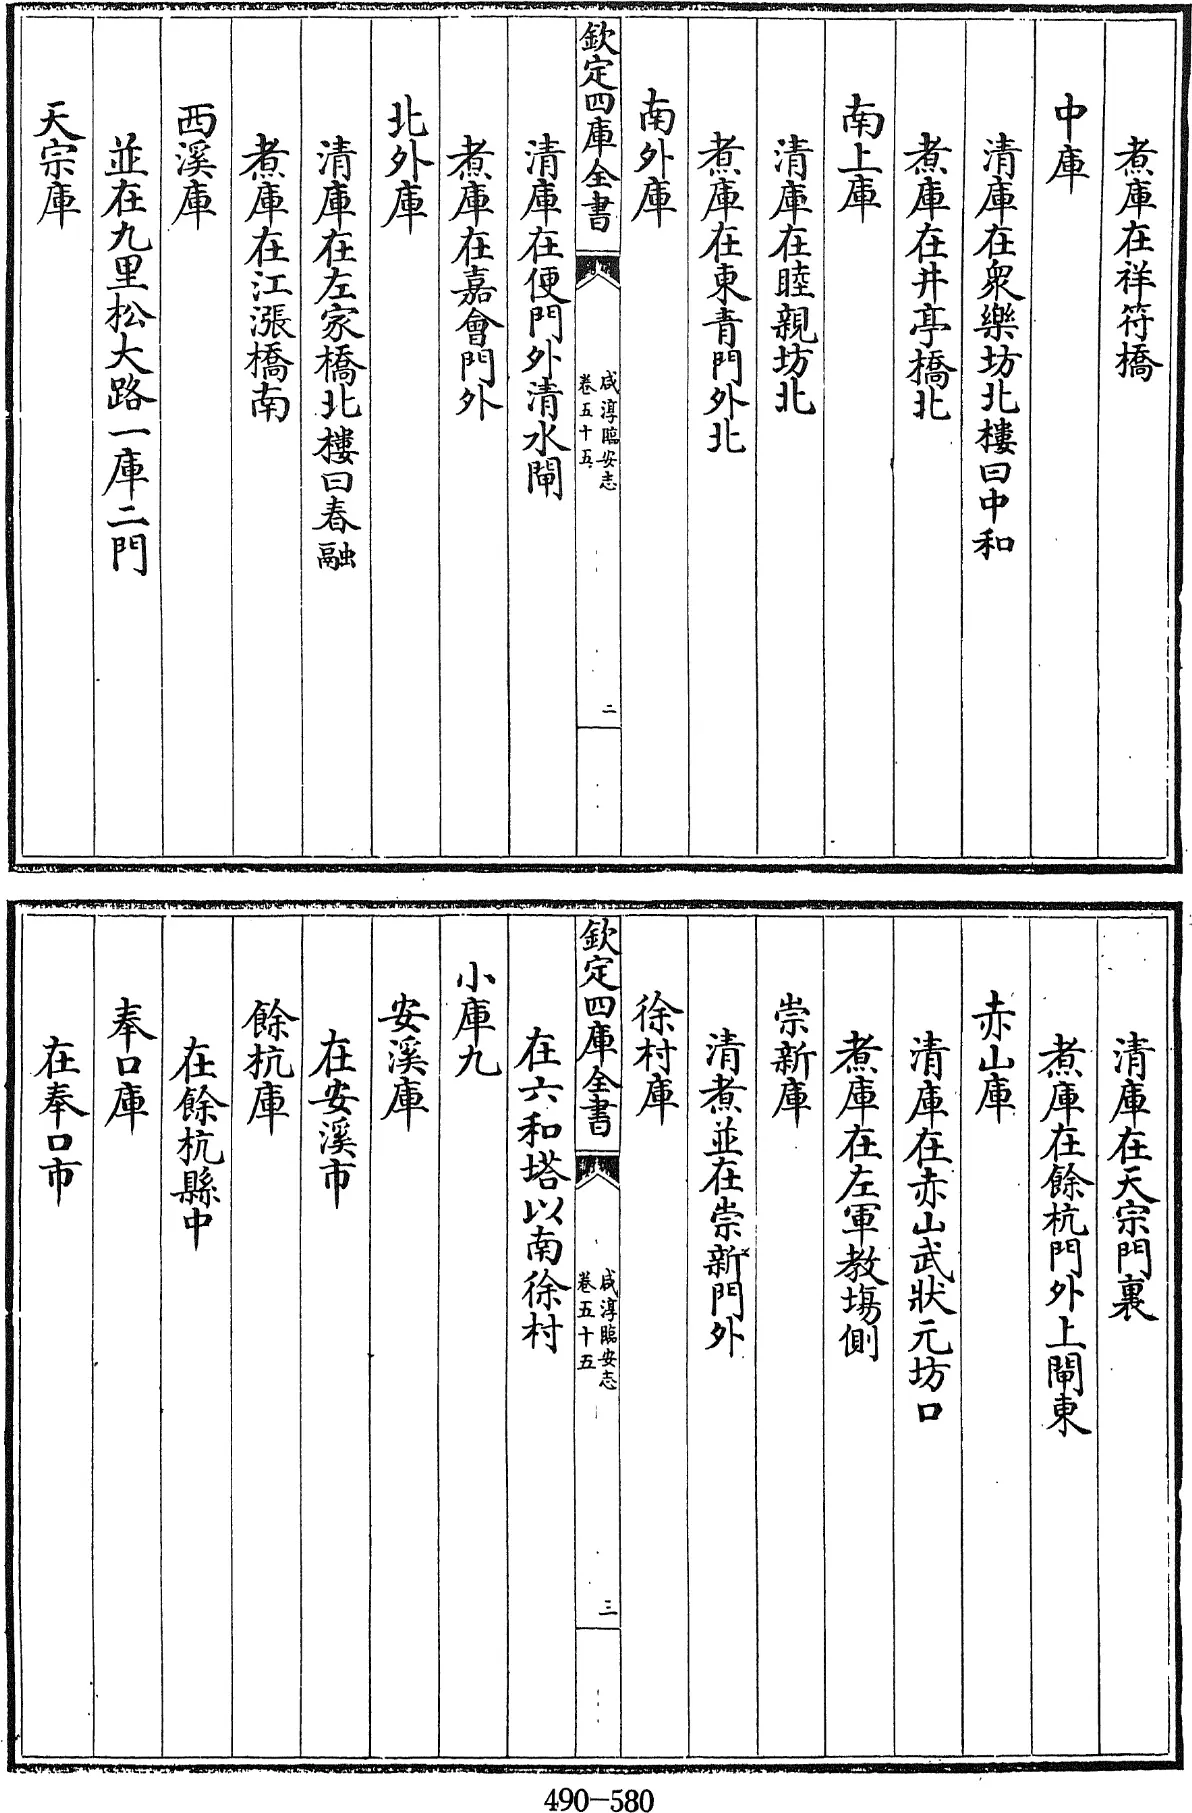 煮庫在祥符橋
中庫
清庫在衆樂坊北樓曰中和
煮庫在井亭橋北
南上庫
清庫在睦親坊北
煮庫在東青門外北
南外庫
欽定四庫全書
咸淳臨安志
卷五十五
二
清庫在便門外清水閘
煮庫在嘉會門外
北外庫
清庫在左家橋北樓曰春融
煮庫在江漲橋南
西溪庫
並在九里松大路一庫二門
天宗庫
清庫在天宗門裏
煮庫在餘杭門外上閘東
赤山庫
清庫在赤山武狀元坊口
煮庫在左軍教場側
崇新庫
清煮並在崇新門外
徐村庫
欽定四庫全書
咸淳臨安志
卷五十五
三
在六和塔以南徐村
小庫九
安溪庫
在安溪市
餘杭庫
在餘杭縣中
奉口庫
在奉口市
490-580